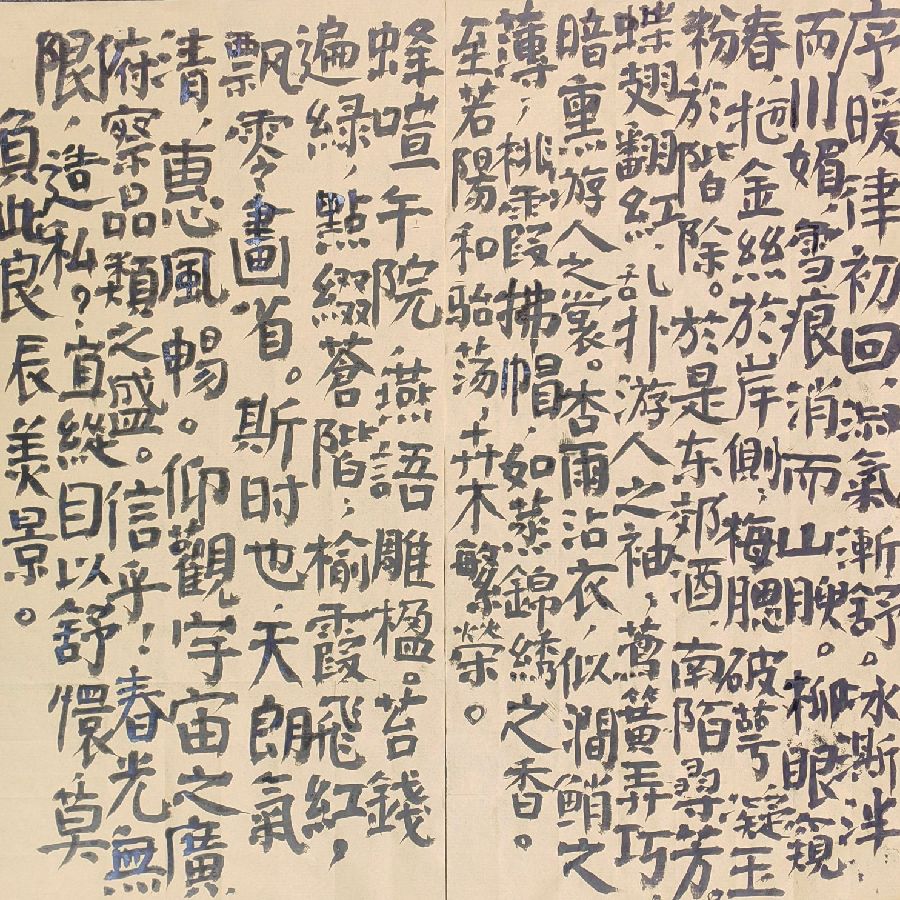 序暖律初回,淑氣漸舒。冰澌泮
而川媚,雪痕消而山腴。柳眼窺
春,拖金絲於岸側,梅腮破萼,凝玉
粉於階除。於是东郊酒,南陌尋芳。
蝶翅翻紅,乱扑游人之袖,鶯簧弄巧,
暗熏游人之裳。杏雨沾衣,似澗鮹之
薄,桃霞拂帽,如蒸錦綉之香。
至若陽和骀荡,艹木繁榮。
蜂喧午院,燕語雕楹。苔錢
遍綠,點綴蒼階,榆霞飛紅,
飘零畫省。斯时也,天朗氣
清,惠風暢。仰觀宇宙之廣
俯察品類之盛。信乎!春光無
限,造私?宜縱目以舒懷,莫
負此良辰美景。